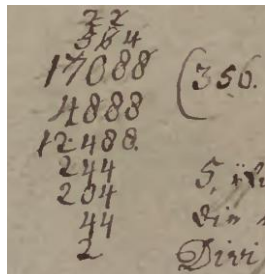 2 2
3 6 4
17088 (350.
4888
12488.
244
204 5,
44 din
2 Divi